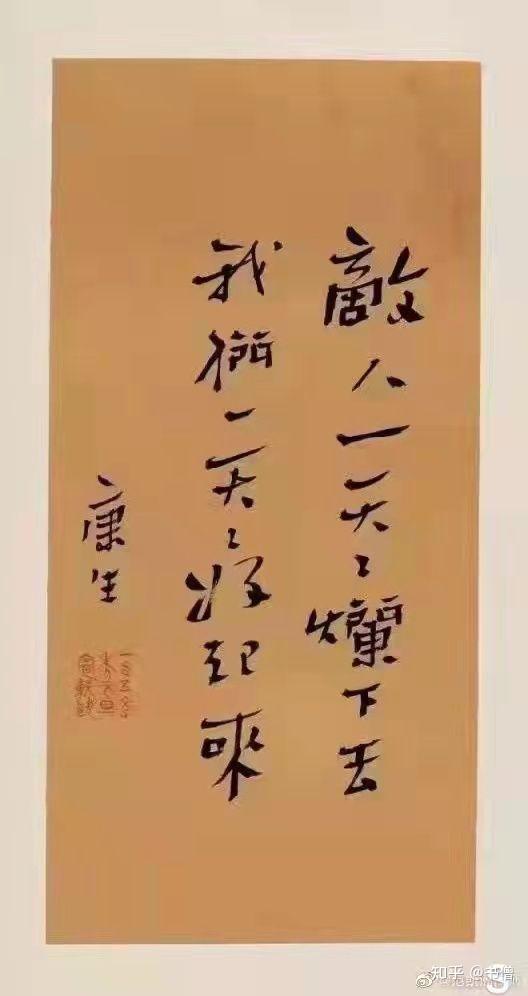 敵人一天〻爛下去
我們一天〻好起來
康生
知乎 @书僧